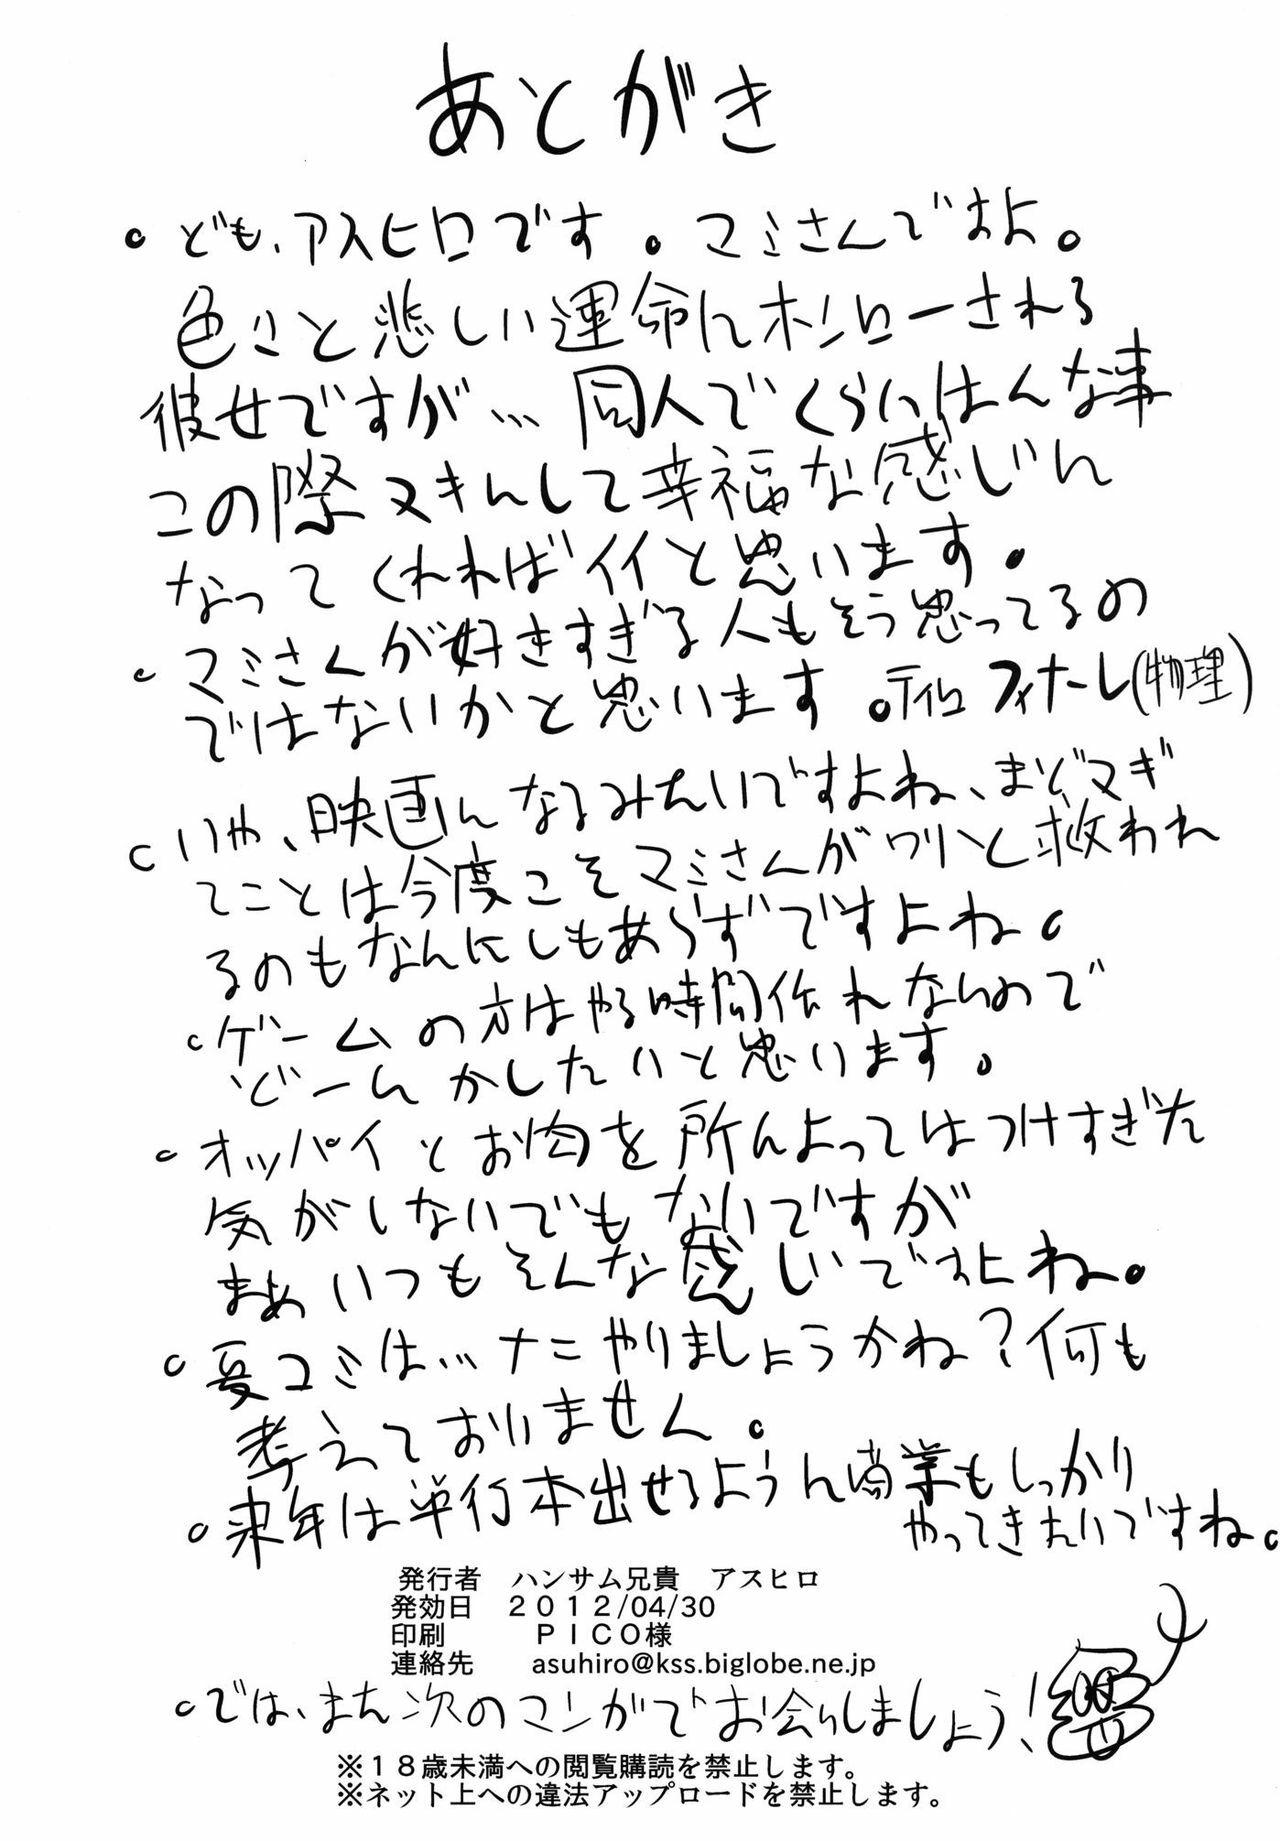 あとがき
ども、アスヒロです。マミさんですよ。
色々と悲しい運命にホンローされる
彼女ですが…同人でくらいはんな事
この際ヌキにして幸福な感じに
なってくれればイイと思います。
マミさんが好きすぎる人もそう思ってるの
ではないかと思います。ティロ フィナーレ(物理)
いや、映画になるみたいですよね、まどマギ
てことは今度こそマミさんがワリと救われ
るのもなきにしもあらずですよね。
ゲームの方はやる時間作れないので
どーにかしたいと思います。
オッパイとお肉を所によってはつけすぎた
気がしないでもないですが
まぁいつもそんな感じですよね。
夏コミは…ナニやりましょうかね?何も
考えておりません。
来年は単行本出せるように商業もしっかり
やってきたいですね。
発行者 ハンサム兄貴 アスヒロ
発効日 2012/04/30
印刷 PICO様
連絡先 asuhiro@kss.biglobe.ne.jp
では、また次のマンガでお会いしましょう!
※18歳未満への閲覧購読を禁止します。
※ネット上への違法アップロードを禁止します。